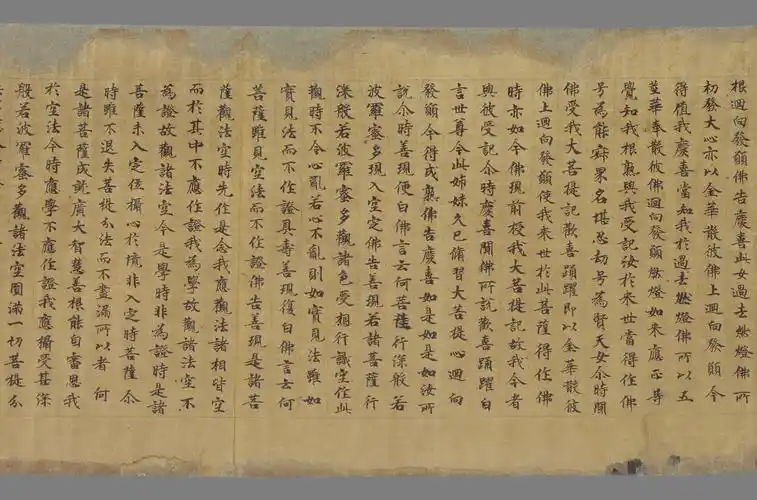 根迴向發願佛告慶喜此女過去然燈佛所
初發大心亦以金華散彼佛上迴向發願今
得值我慶喜當知我於過去燃燈佛所以五
莖華奉散彼佛迴向發願燃燈如來應正等
覺知我根熟與我受記汝於來世當得作佛
号為能寂界名堪忍劫号為賢天女尒時聞
佛受我大菩提記歡喜踊躍即以金華散彼
佛上迴向發願使我來世於此菩薩得作佛
時亦如今佛現前授我大菩提記故我今者
與彼受記尒時慶喜聞佛所說歡喜踊躍白
言世尊今此姊妹久已脩習大菩提心迴向
發願今得成熟佛告慶喜如是如是如汝所
說尒時善現便白佛言云何菩薩行深般若
波羅蜜多現入空定佛告善現若諸菩薩行
深般若波羅蜜多觀諸色受想行識空作此
觀時不令心亂若心不亂則如實見法雖如
實見法而不作證具壽善現復白佛言云何
菩薩雖見空法而不作證佛告善現是諸菩
薩觀法空時先作是念我應觀法諸相皆空
而於其中不應作證我為學故觀諸法空不
為證故觀諸法空今是學時非為證時是諸
菩薩未入定位攝心於境非入定時菩薩尒
時雖不退失菩提分法而不盡漏所以者何
是諸菩薩成就廣大智慧善根能自審思我
於空法今時應學不應作證我應攝受甚深
般若波羅蜜多觀諸法空圓滿一切菩提分